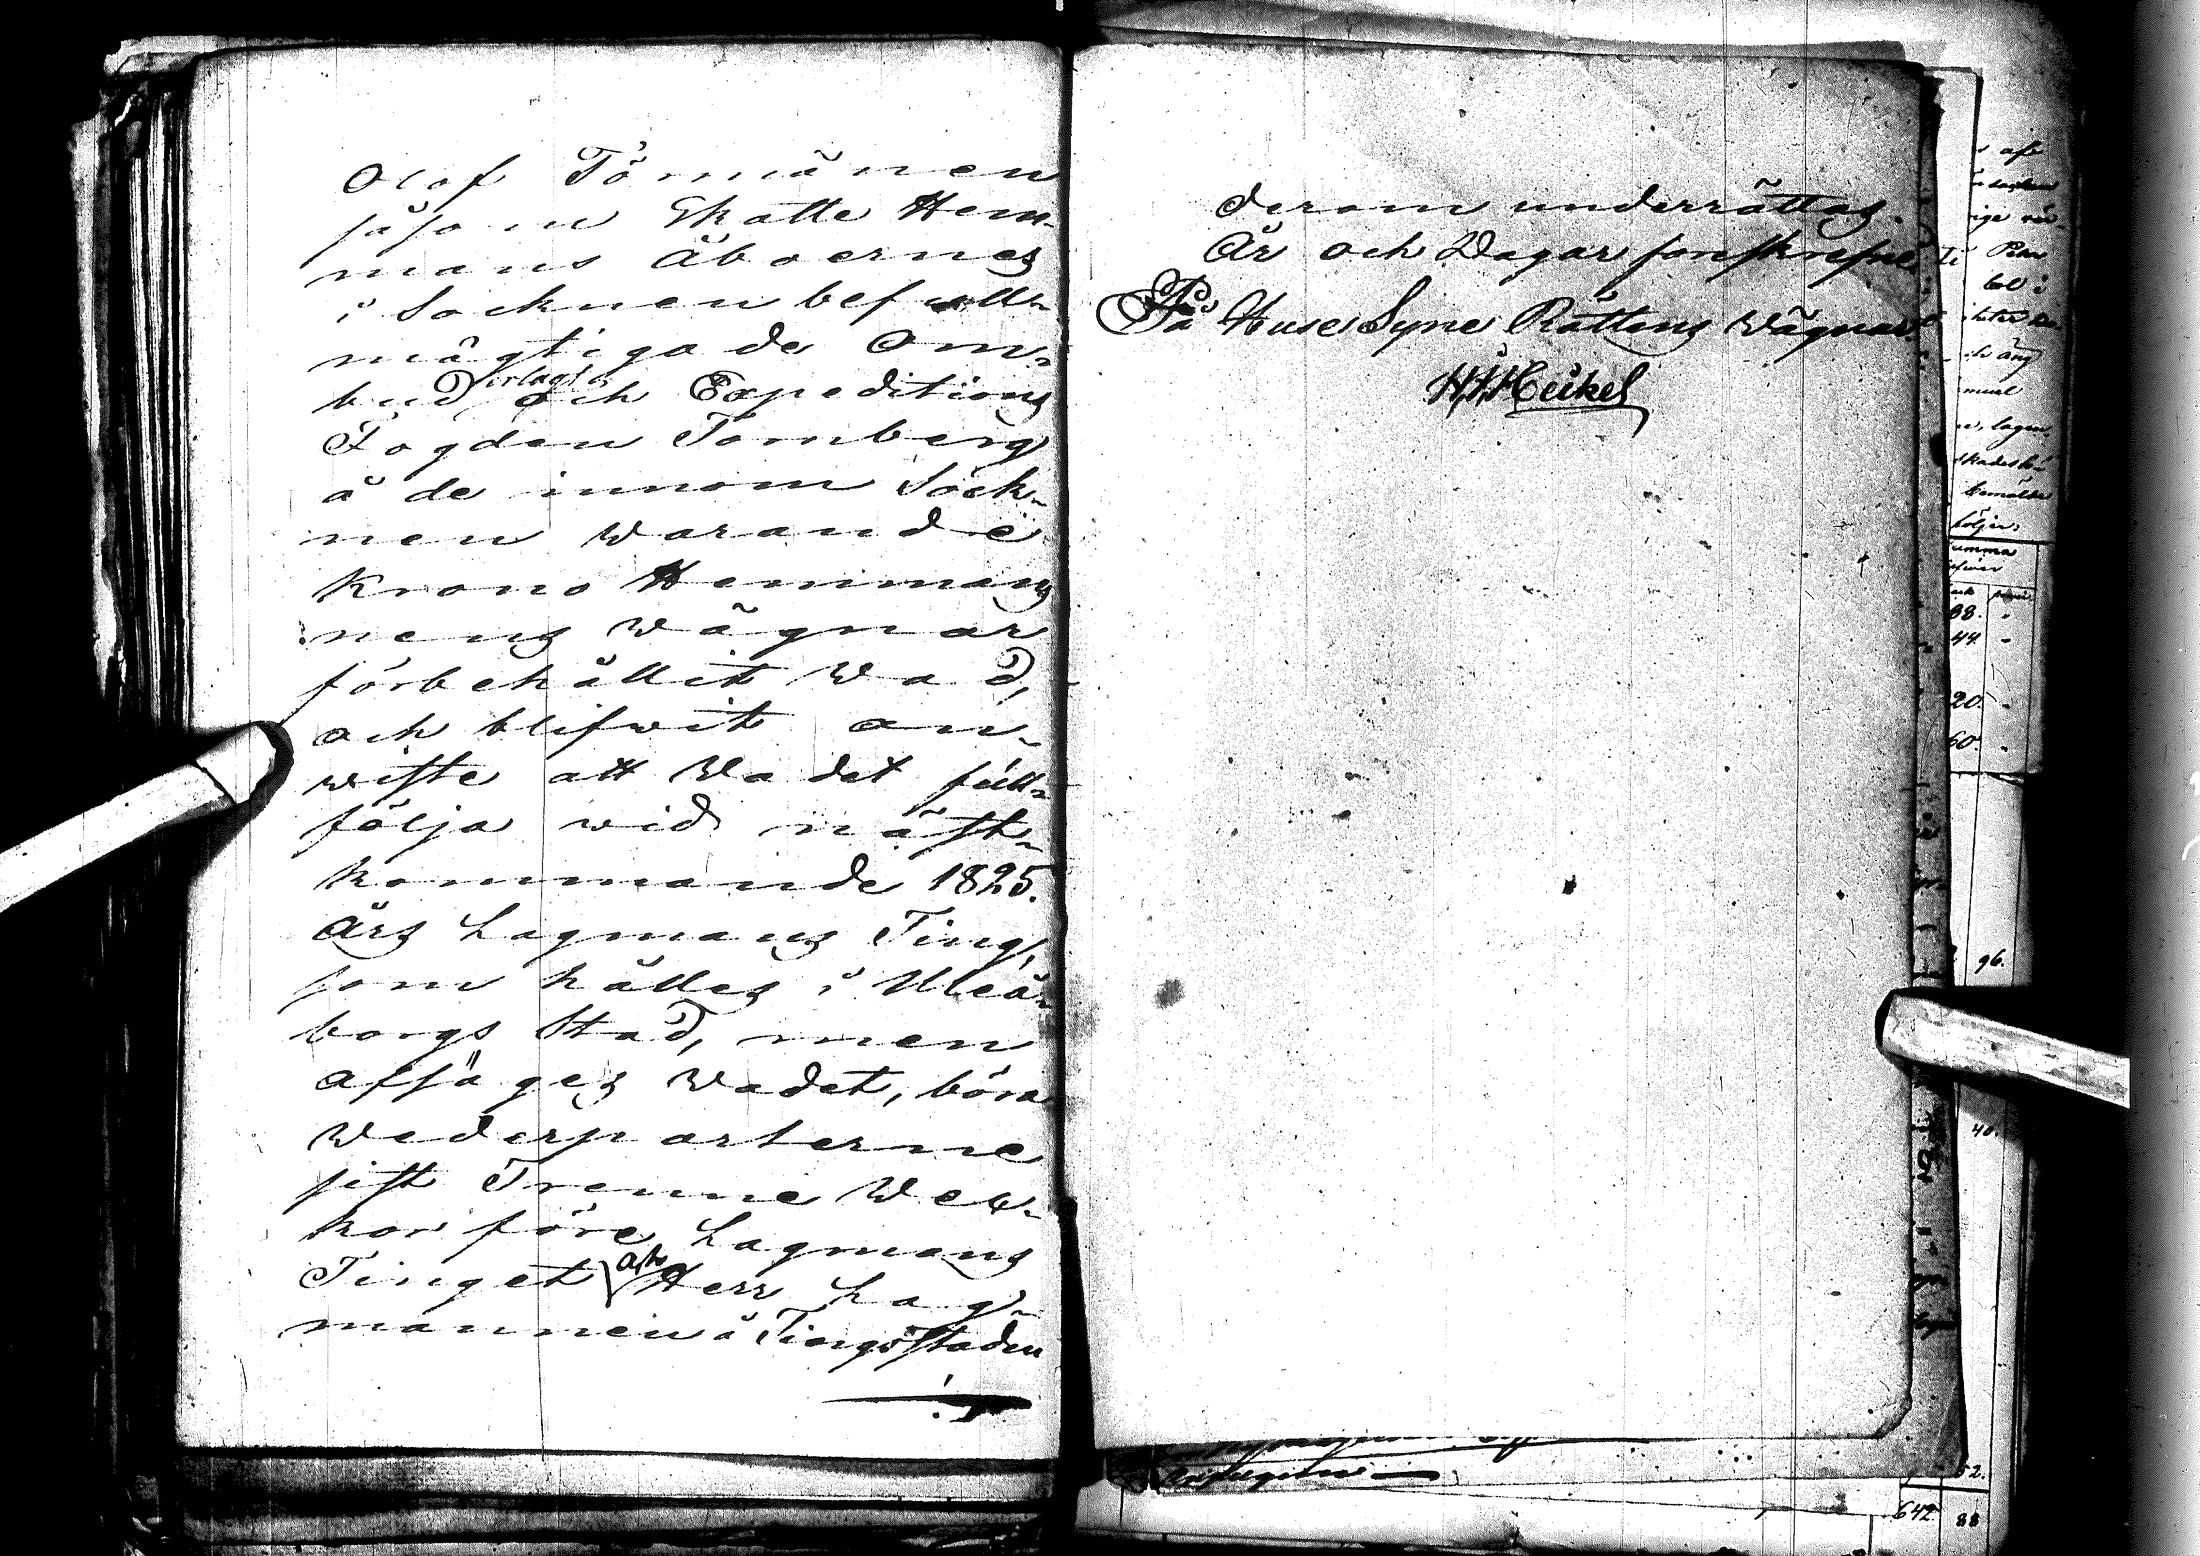 Olof Törmänen
såsom Skatte Hem-
mans Åboernes
i Socknen befull-
mägtigade Om-
bud erlagt och Expeditions
Fogden Tornberg
å de innom Sock-
nen warande
Krono Hemman
nens wägnar
förbehållit Wad,
och blifwit an-
wiste att Wadet full-
följa wid näst-
kommande 1825.
Års Lagmans Ting,
som hålles i Uleå-
borgs Stad, men
afsäges Wadet, böra
Wederparterne
sist Trenne Wec-
kor före Lagmans
Tinget att Herr Lag-
mannen å TingsStaden
derom underrättas.
År och Dagar förskrefne
På Huse Syne Rättens Wägnar.
H. H. Heikel
af
Petr
bol i
äng
lagm
bemälte
följer:
Summa
88.
44
20.
60.
96.
40.
52.
642 88